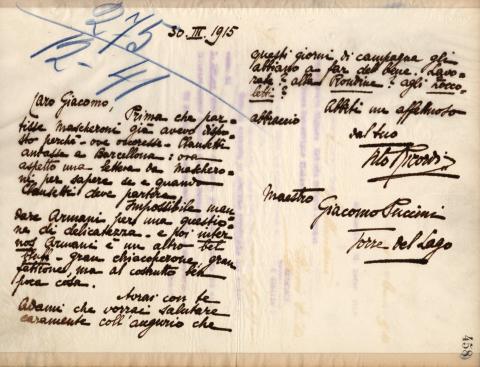 2/5
12-41
30. III. 1915
Caro Giacomo,
Prima che par-
tisse Mascheroni già avevo dispo-
sto perchè - ove occorresse - Clausetti
andasse a Barcellona: ora
aspetto una lettera da Maschero-
ni per sapere se e quando
Clausetti deve partire.
Impossibile man-
dare Armani per una questio-
ne di delicatezza - e poi inter
nos Armani è un altro bel
bluff - gran chiacchierone, gran
, ma al costrutto ben
poca cosa.
Avrai con te
Adami che vorrai salutare
caramente coll'augurio che
questi giorni di campagna gli
abbiano a far del bene. Lavo-
rate? alla Rondine? agli zocco-
letti?
Abbiti un affettuoso
abbraccio
dal tuo
Tito Ricordi
Maestro
Giacomo Puccini
Torre del Lago
458